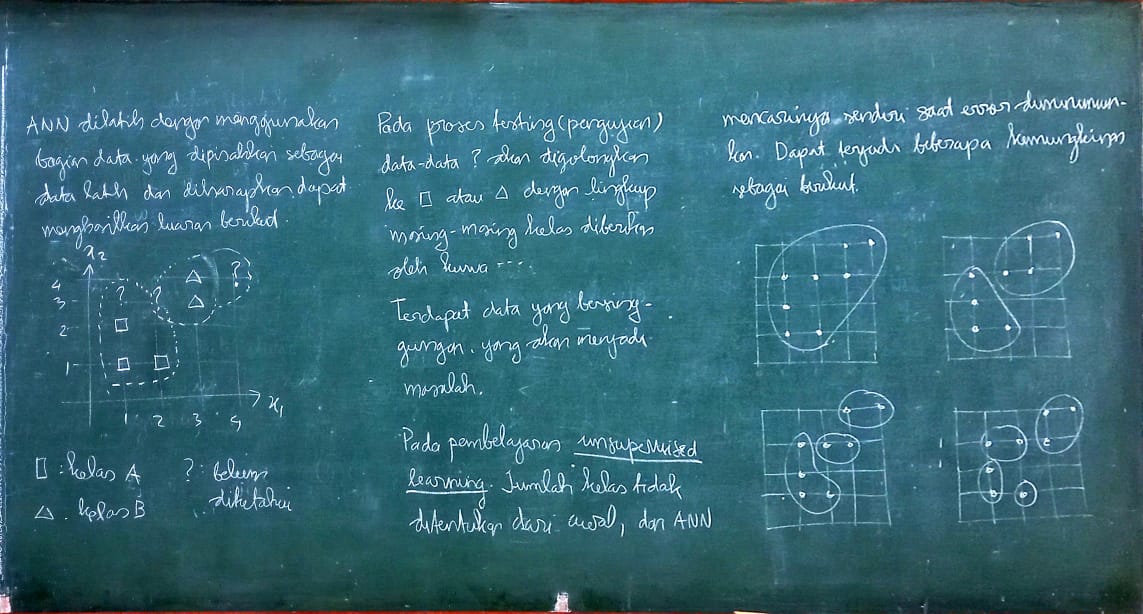 ANN dilatih dengan menggunakan
bagian data yang dipisahkan sebagai
data latih dan diharapkan dapat
menghasilkan luaran berikut.
x₂
4
3
2
1
? ? △ ?
△
□
□ □
1 2 3 4
x₁
□ : kelas A
△ : kelas B
? : belum
diketahui
Pada proses testing (pengujian)
data-data ? akan digolongkan
ke □ atau △ dengan lingkup
masing-masing kelas diberikan
oleh kurva ----
Terdapat data yang bersing-
gungan, yang akan menjadi
masalah.
Pada pembelajaran unsupervised
learning. Jumlah kelas tidak
ditentukan dari awal, dan ANN
mencarinya sendiri saat error diminimum-
kan. Dapat terjadi beberapa kemungkinan
sebagai berikut.